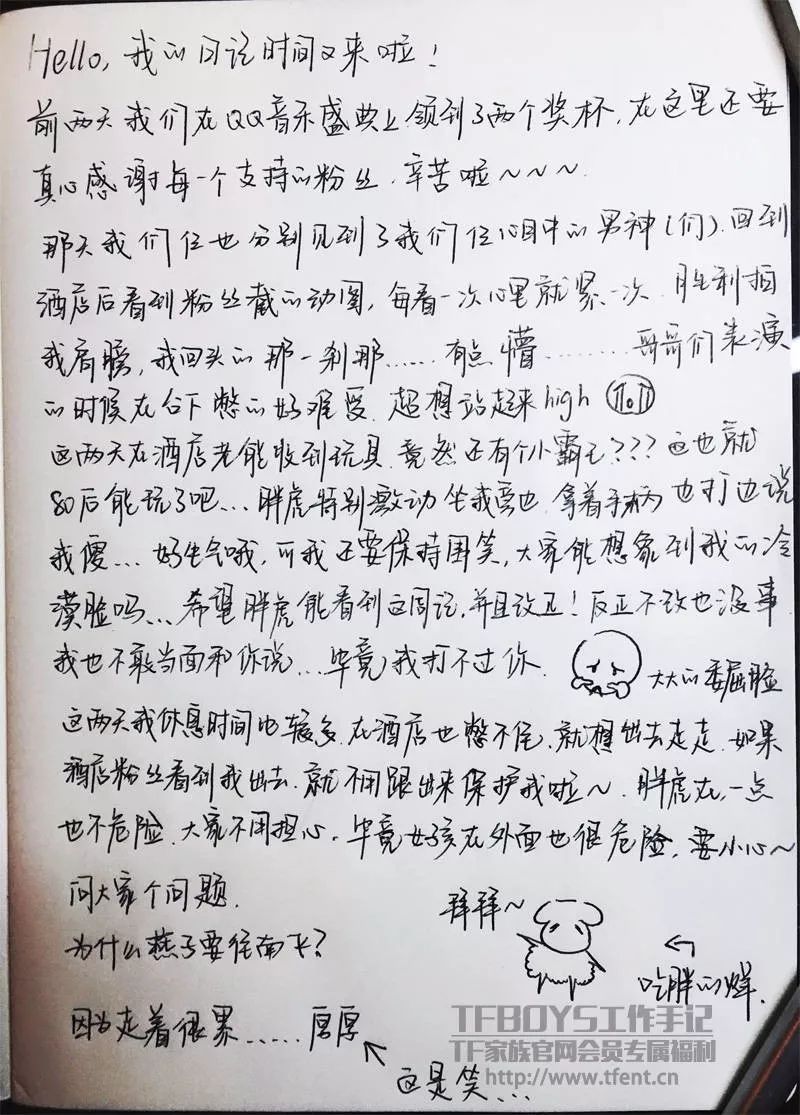 Hello, 我的周记时间又来啦！
前两天我们在QQ音乐盛典上领到了两个奖杯，在这里还要
真心感谢每一个支持的粉丝，辛苦啦～～～
那天我们仨也分别见到了我们仨心目中的男神（们）.回到
酒店后看到粉丝截的动图，每看一次心里就紧一次，胜利拍
我肩膀，我回头的那一刹那……有点懵………哥哥们表演
的时候在台下憋的好难受，超想站起来high
这两天在酒店老能收到玩具，竟然还有个小霸王???这也就
80后能玩了吧…胖虎特别激动坐我旁边，拿着手柄边打边说
我傻…好生气哦，可我还要保持围笑，大家能想象到我的冷
漠脸吗…希望胖虎能看到这周记，并且改正！反正不改也没事
我也不敢当面和你说…毕竟我打不过你.
大大的委屈脸
这两天我休息时间比较多，在酒店也憋不住，就想出去走走，如果
酒店粉丝看到我出去，就不用跟出来保护我啦～，胖虎在，一点
也不危险，大家不用担心，毕竟女孩在外面也很危险，要小心～
问大家个问题.
拜拜～
为什么燕子要往南飞？
吃胖的烊.
因为走着很累……厚厚
这是笑…
TFBOYS工作手记
TF家族官网会员专属福利
http://www.tfent.cn